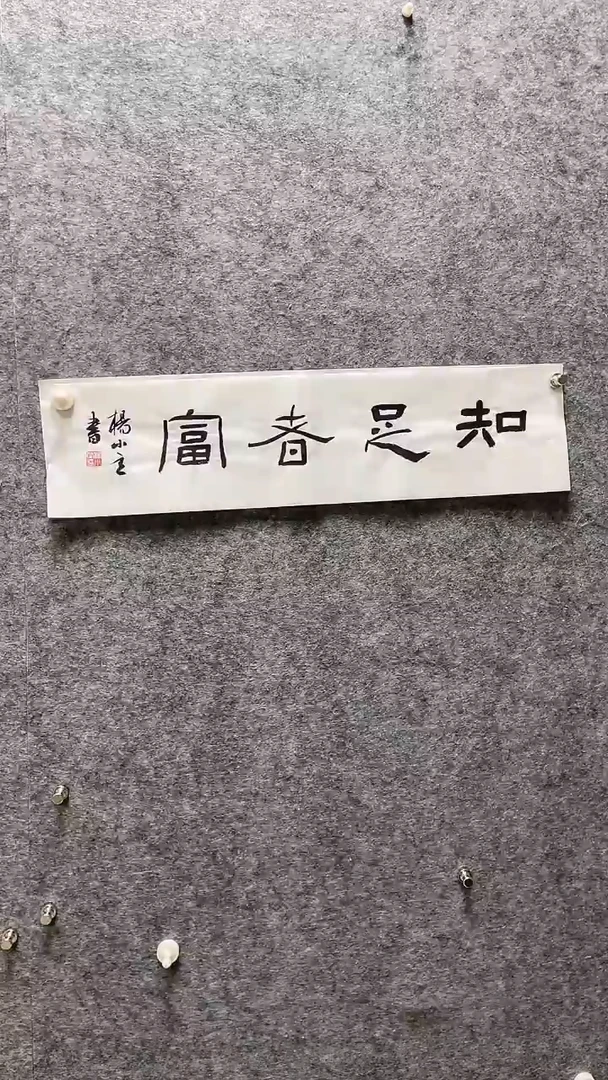 知足者富
楊小主
書